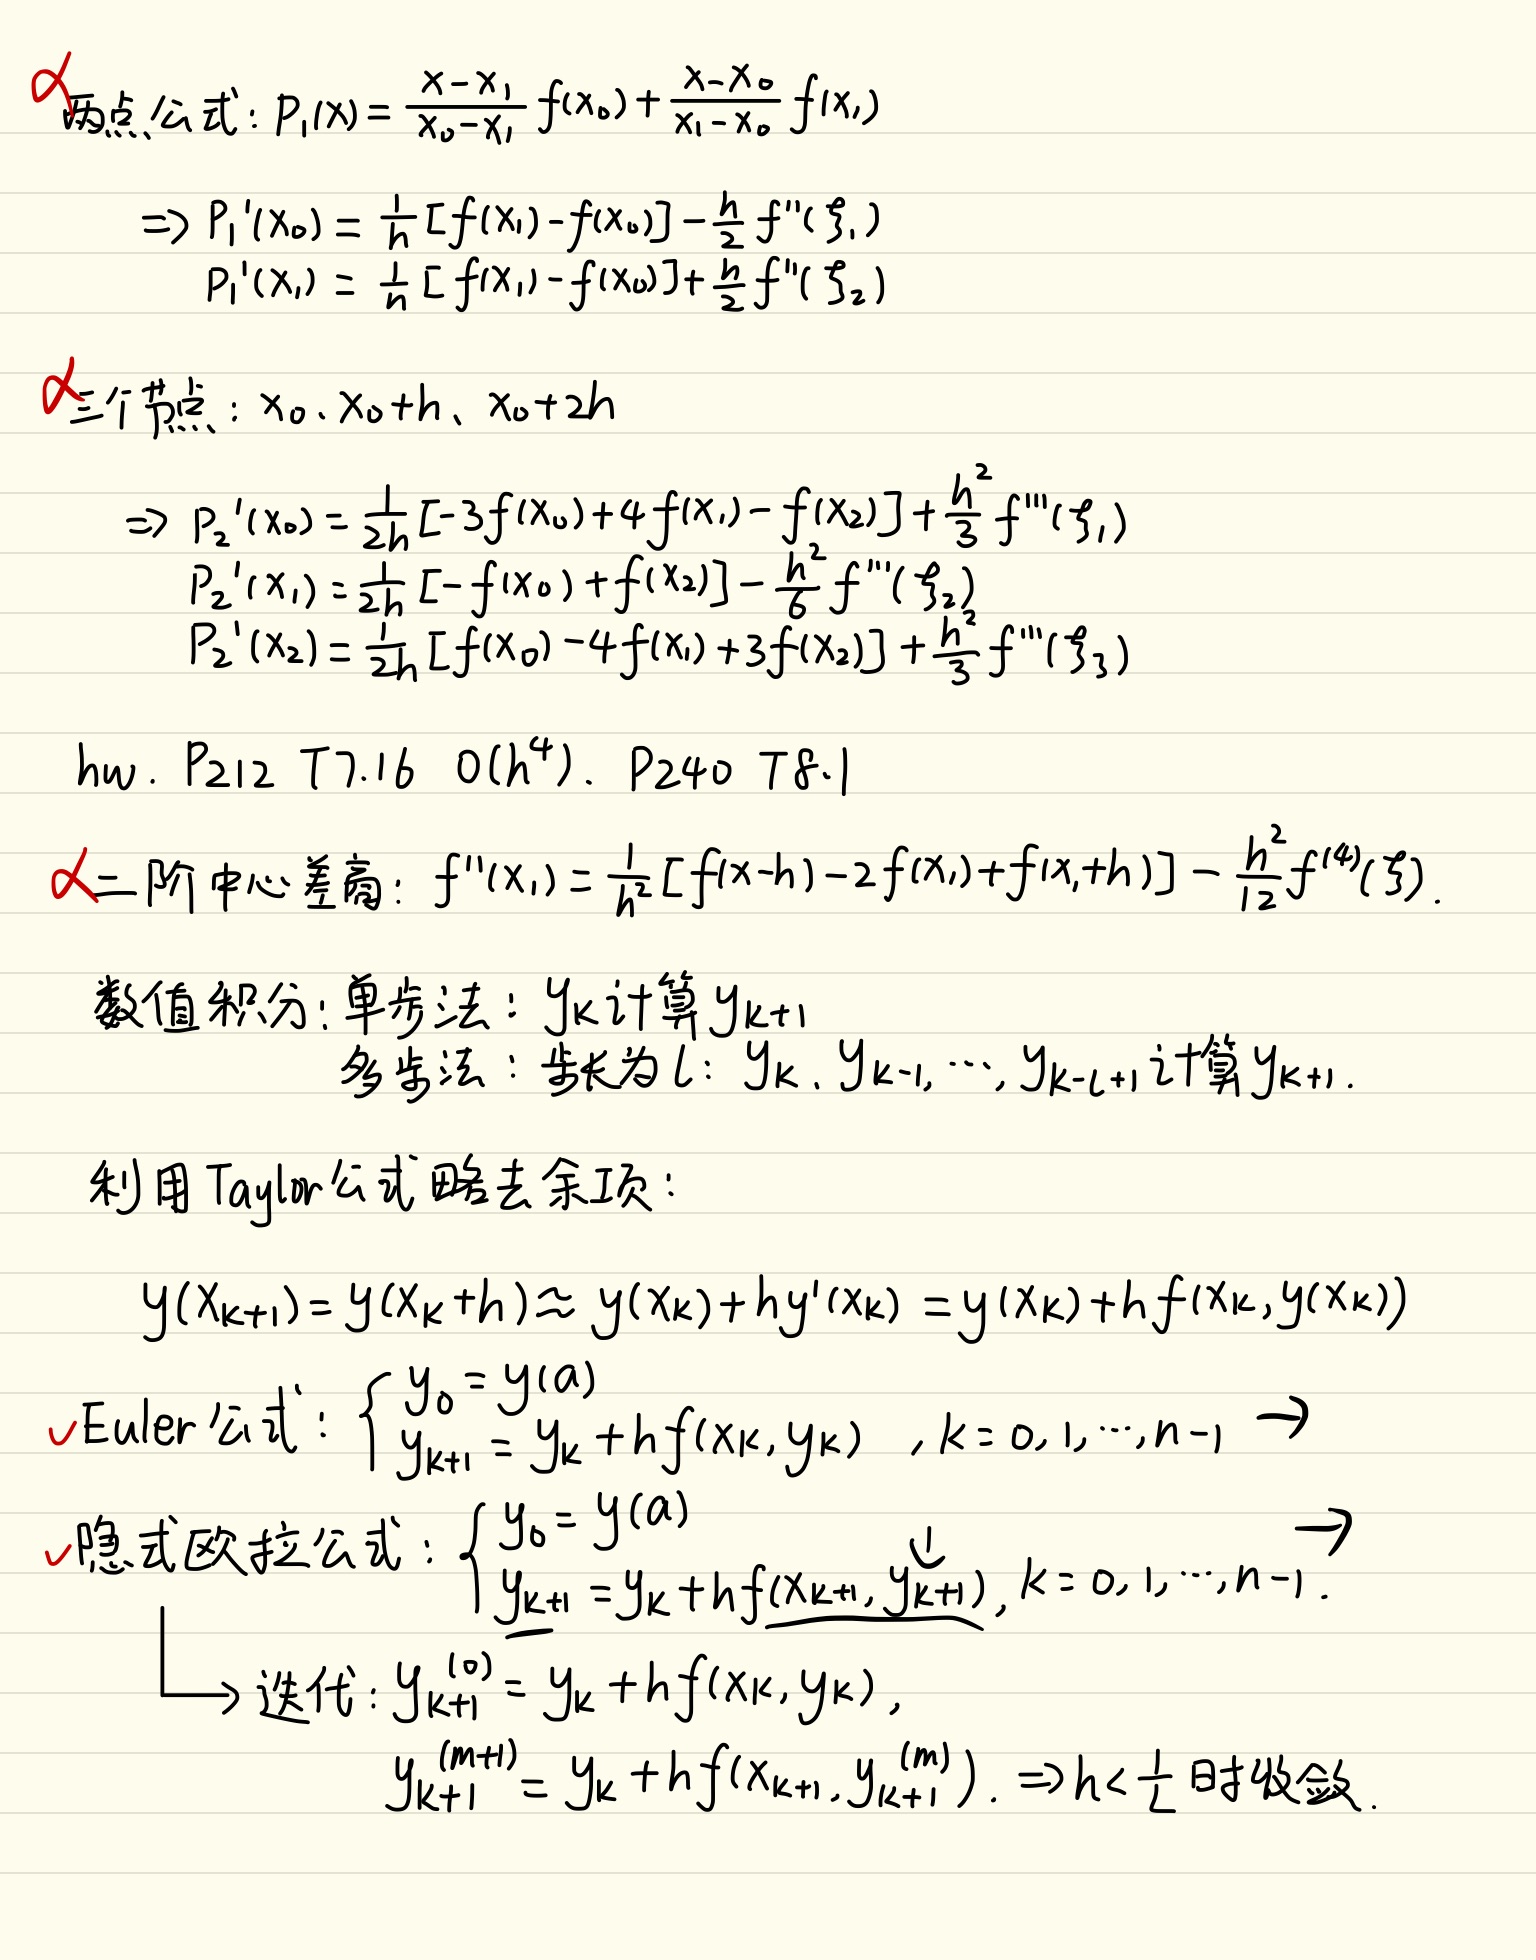 α 两点公式: P₁(x) = \frac{x-x₁}{x₀-x₁} f(x₀) + \frac{x-x₀}{x₁-x₀} f(x₁)
⇒ P₁'(x₀) = \frac{1}{h} [f(x₁) - f(x₀)] - \frac{h}{2} f''(ξ₁)
P₁'(x₁) = \frac{1}{h} [f(x₁) - f(x₀)] + \frac{h}{2} f''(ξ₂)
α 三个节点: x₀、x₀+h、x₀+2h
⇒ P₂'(x₀) = \frac{1}{2h} [-3f(x₀) + 4f(x₁) - f(x₂)] + \frac{h²}{3} f'''(ξ₁)
P₂'(x₁) = \frac{1}{2h} [-f(x₀) + f(x₂)] - \frac{h²}{6} f'''(ξ₂)
P₂'(x₂) = \frac{1}{2h} [f(x₀) - 4f(x₁) + 3f(x₂)] + \frac{h²}{3} f'''(ξ₃)
hw. P212 T7.16 O(h⁴). P240 T8.1
α 二阶中心差商: f''(x₁) = \frac{1}{h²} [f(x-h) - 2f(x₁) + f(x₁+h)] - \frac{h²}{12} f⁽⁴⁾(ξ).
数值积分: 单步法: y_k 计算 y_{k+1}
多步法: 步长为 l: y_k、y_{k-1}, ..., y_{k-l+1} 计算 y_{k+1}.
利用 Taylor 公式略去余项:
y(x_{k+1}) = y(x_k+h) ≈ y(x_k) + hy'(x_k) = y(x_k) + hf(x_k, y(x_k))
✓ Euler 公式: { y₀ = y(a)
y_{k+1} = y_k + hf(x_k, y_k) , k = 0, 1, ..., n-1 →
✓ 隐式欧拉公式: { y₀ = y(a) →
y_{k+1} = y_k + hf(x_{k+1}, y_{k+1}), k = 0, 1, ..., n-1.
→ 迭代: y_{k+1}^{(0)} = y_k + hf(x_k, y_k),
y_{k+1}^{(m+1)} = y_k + hf(x_{k+1}, y_{k+1}^{(m)}). ⇒ h < \frac{1}{L} 时收敛.